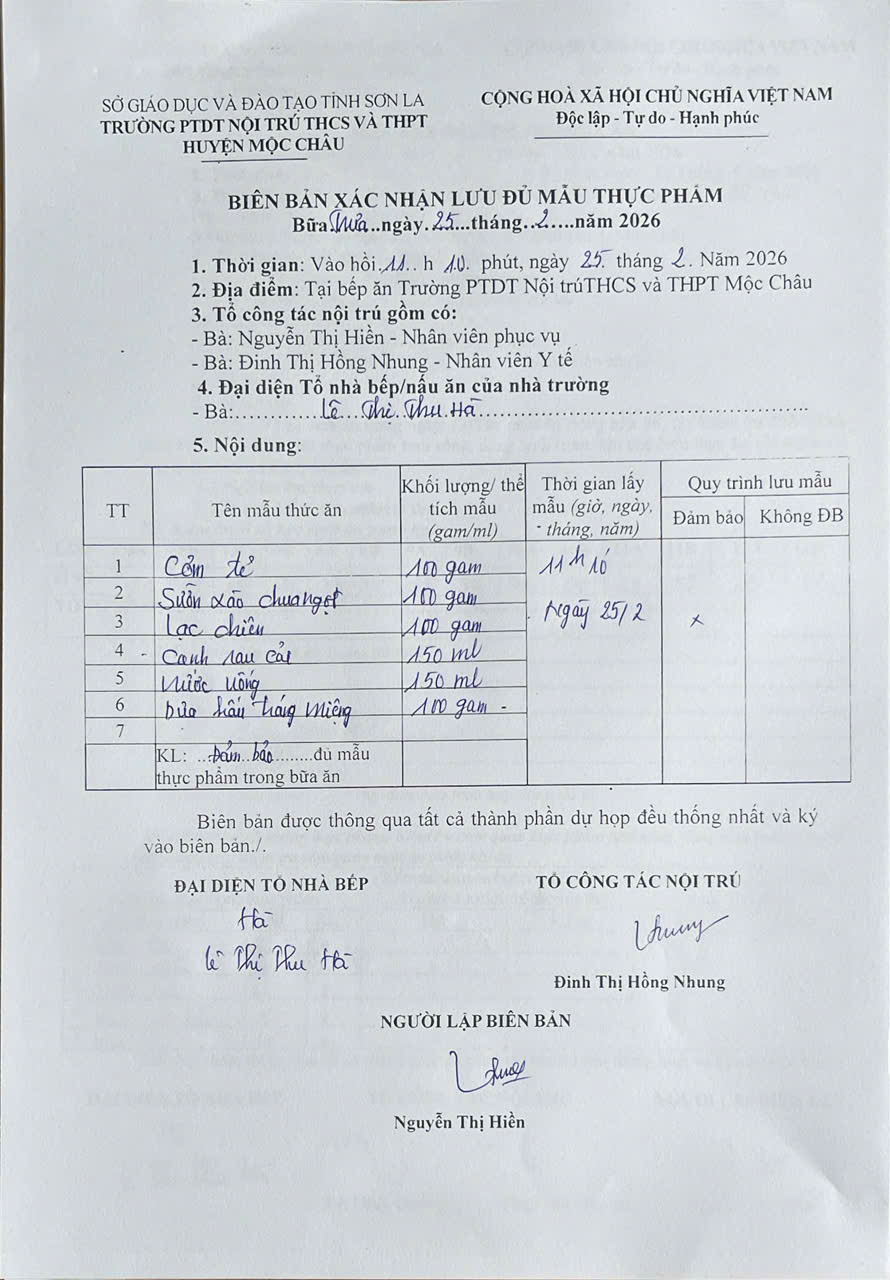 SỞ GIÁO DỤC VÀ ĐÀO TẠO TỈNH SƠN LA
TRƯỜNG PTDT NỘI TRÚ THCS VÀ THPT
HUYỆN MỘC CHÂU
CỘNG HOÀ XÃ HỘI CHỦ NGHĨA VIỆT NAM
Độc lập - Tự do - Hạnh phúc
BIÊN BẢN XÁC NHẬN LƯU ĐỦ MẪU THỰC PHẨM
Bữa Trưa..ngày.25...tháng..2....năm 2026
1. Thời gian: Vào hồi.11.. h 10. phút, ngày 25. tháng 2. Năm 2026
2. Địa điểm: Tại bếp ăn Trường PTDT Nội trúTHCS và THPT Mộc Châu
3. Tổ công tác nội trú gồm có:
- Bà: Nguyễn Thị Hiền - Nhân viên phục vụ
- Bà: Đinh Thị Hồng Nhung - Nhân viên Y tế
4. Đại diện Tổ nhà bếp/nấu ăn của nhà trường
- Bà:............Lê...Thị.Thu.Hà..............................................
5. Nội dung:
TT Tên mẫu thức ăn Khối lượng/ thể tích mẫu (gam/ml) Thời gian lấy mẫu (giờ, ngày, tháng, năm) Quy trình lưu mẫu
Đảm bảo Không ĐB
1 Cơm tẻ 100 gam 11h 10
2 Sườn xào chua ngọt 100 gam
3 Lạc chiên 100 gam Ngày 25/2 x
4 Canh rau cải 150 ml
5 Nước uống 150 ml
6 Dưa hấu tráng miệng 100 gam
7
KL: ..Đảm..bảo.........đủ mẫu
thực phẩm trong bữa ăn
Biên bản được thông qua tất cả thành phần dự họp đều thống nhất và ký
vào biên bản./.
ĐẠI DIỆN TỔ NHÀ BẾP
Hà
Lê Thị Thu Hà
TỔ CÔNG TÁC NỘI TRÚ
Nhung
Đinh Thị Hồng Nhung
NGƯỜI LẬP BIÊN BẢN
Nguyễn Thị Hiền